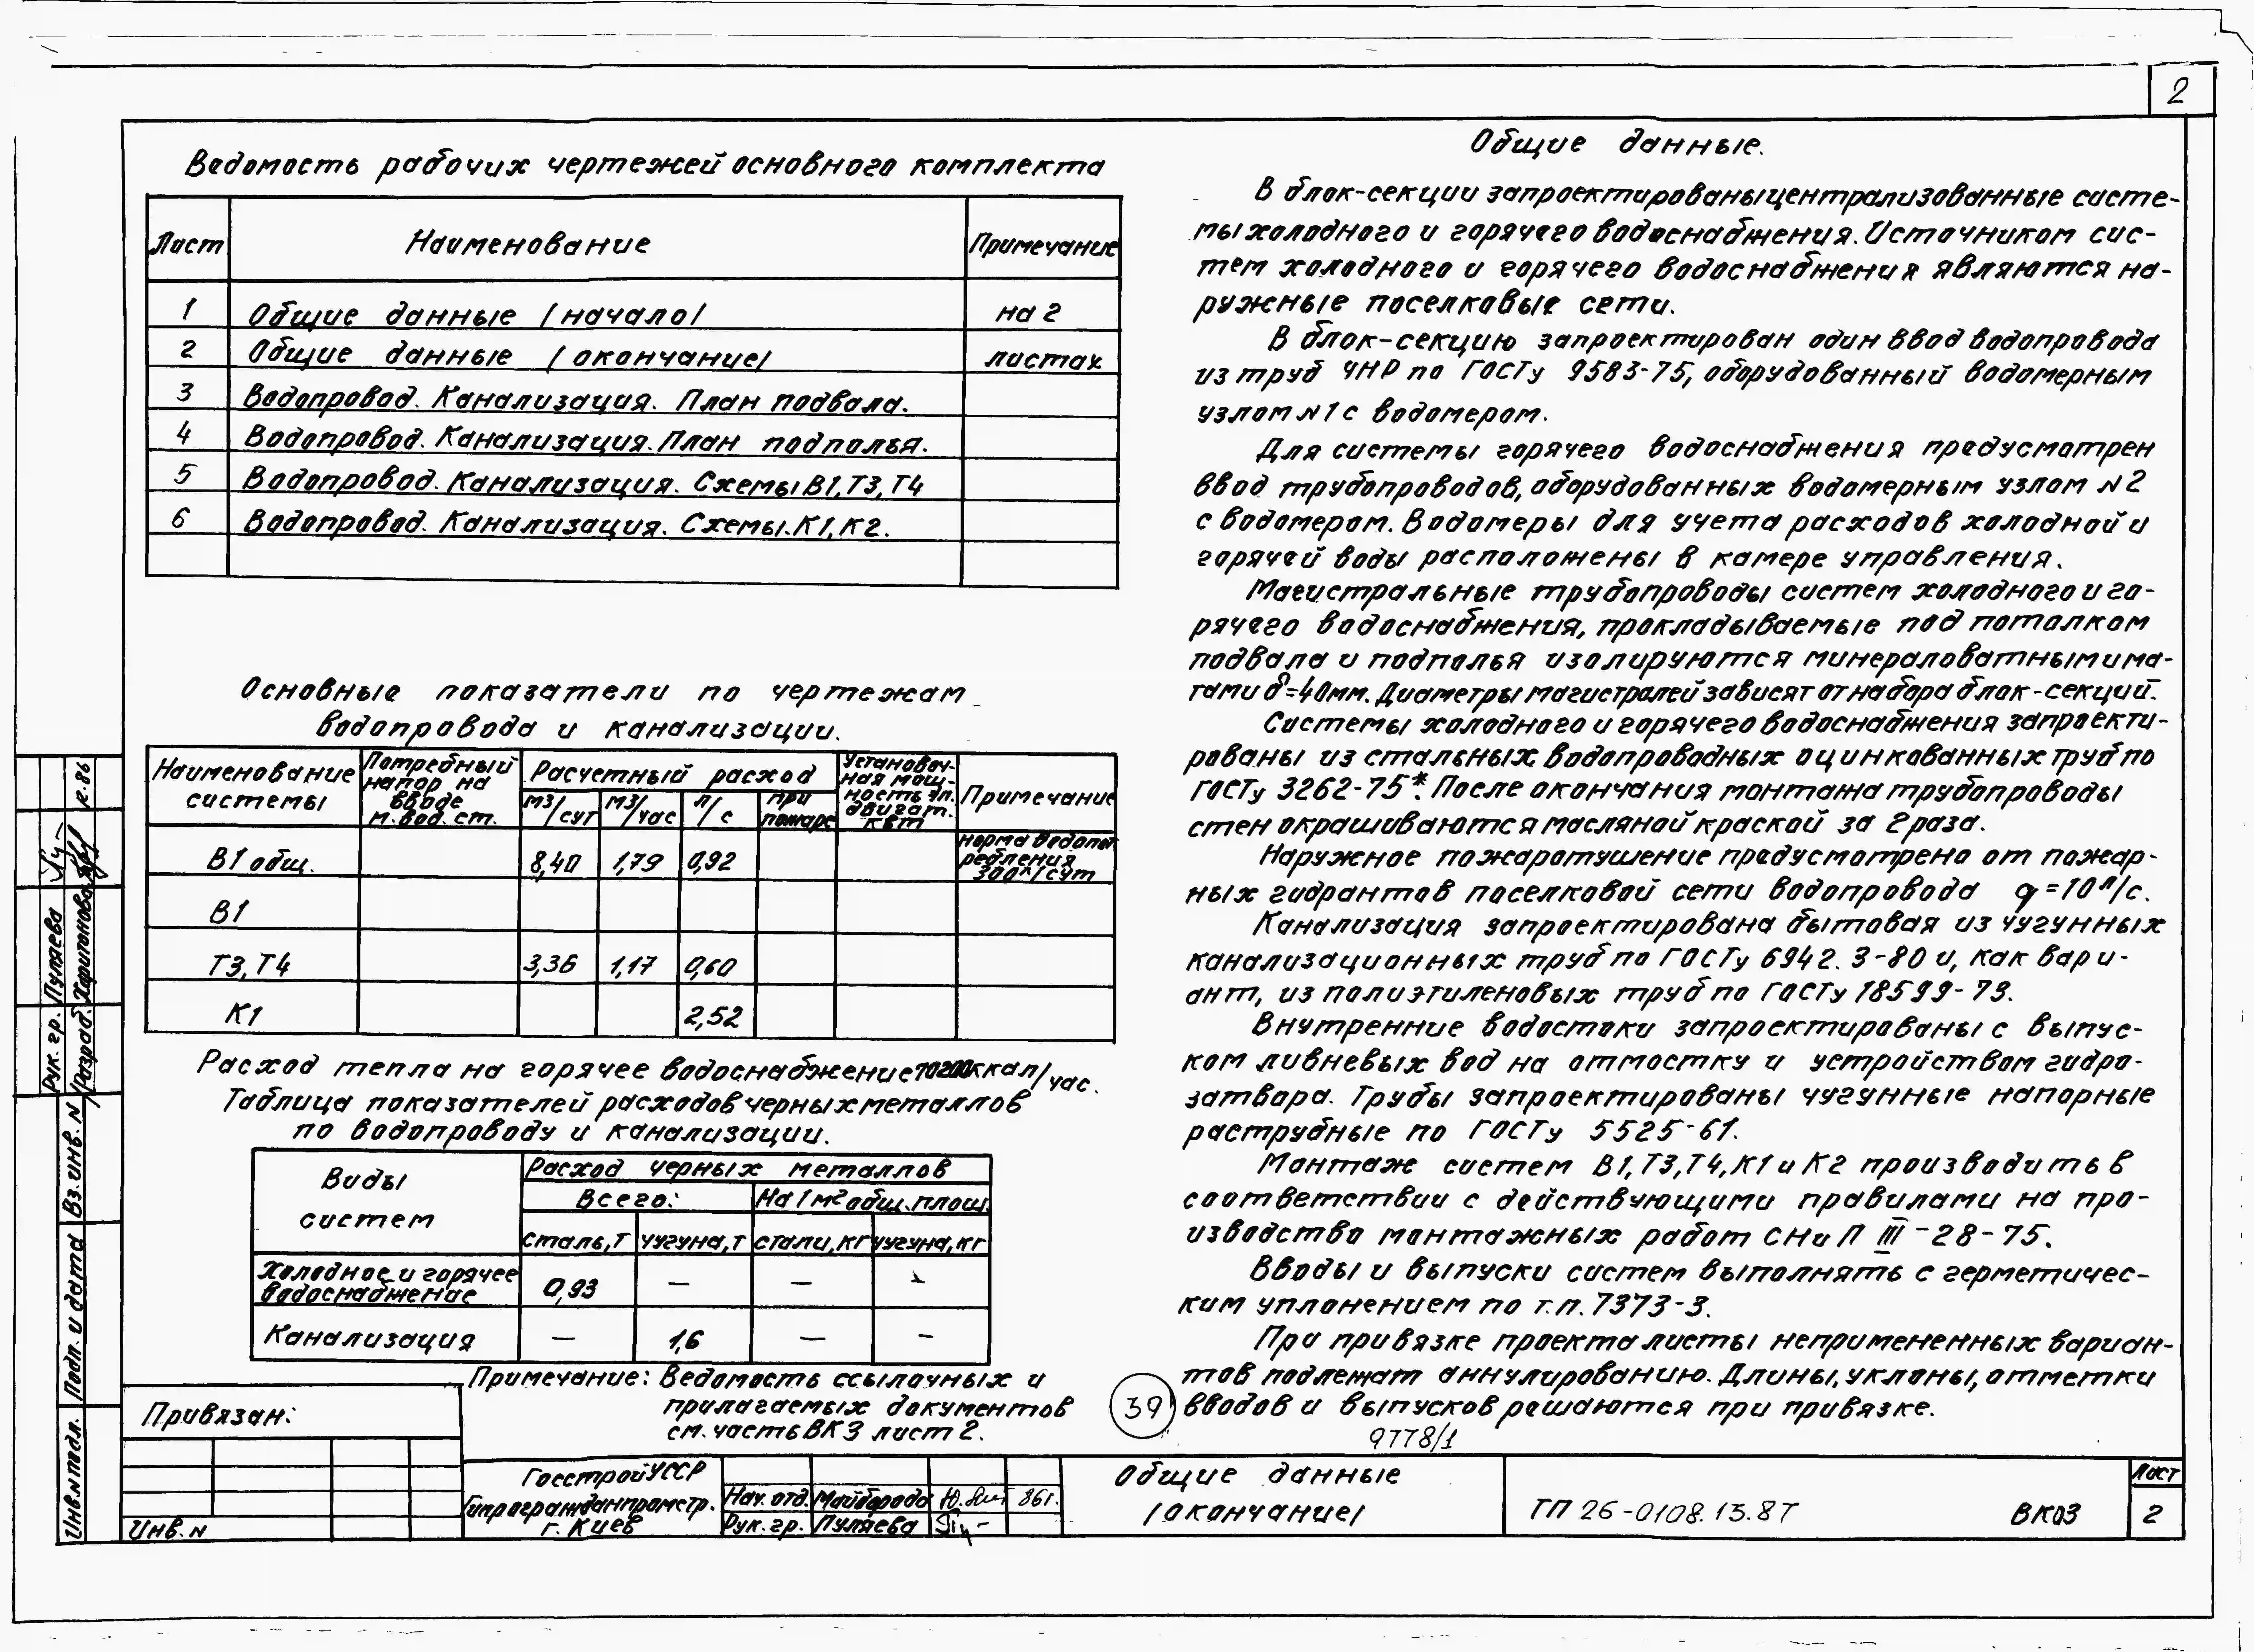 2
Ведомость рабочих чертежей основного комплекта
Лист Наименование Примечание
1 Общие данные /начало/ на 2
2 Общие данные /окончание/ листах
3 Водопровод. Канализация. План подвала.
4 Водопровод. Канализация. План подполья.
5 Водопровод. Канализация. Схемы В1,Т3,Т4
6 Водопровод. Канализация. Схемы.К1,К2.
Основные показатели по чертежам
водопровода и канализации.
Наименование системы Потребный напор на вводе м.вод.ст. Расчетный расход Установоч-ная мощ-ность эл. двигат. квт Примечание
м3/сут м3/час л/с при пожаре
В1 общ. 8,40 1,79 0,92 норма водопот ребления 300л/сут
В1
Т3,Т4 3,36 1,17 0,60
К1 2,52
Расход тепла на горячее водоснабжение 70200ккал/час.
Таблица показателей расходов черных металлов
по водопроводу и канализации.
Виды систем Расход черных металлов
Всего: На 1м2 общ.площ.
сталь,т чугуна,т стали,кг чугуна,кг
Холодное и горячее водоснабжение 0,93 — — —
Канализация — 1,6 — —
Примечание: Ведомость ссылочных и
прилагаемых документов
см. часть ВК3 лист 2.
Общие данные.
В блок-секции запроектированы централизованные систе-
мы холодного и горячего водоснабжения. Источником сис-
тем холодного и горячего водоснабжения являются на-
ружные поселковые сети.
В блок-секцию запроектирован один ввод водопровода
из труб ЧНР по ГОСТу 9583-75, оборудованный водомерным
узлом N1 с водомером.
Для системы горячего водоснабжения предусмотрен
ввод трубопроводов, оборудованных водомерным узлом N2
с водомером. Водомеры для учета расходов холодной и
горячей воды расположены в камере управления.
Магистральные трубопроводы систем холодного и го-
рячего водоснабжения, прокладываемые под потолком
подвала и подполья изолируются минераловатными ма-
тами δ=40мм. Диаметры магистралей зависят от набора блок-секций.
Системы холодного и горячего водоснабжения запроекти-
рованы из стальных водопроводных оцинкованных труб по
ГОСТу 3262-75*. После окончания монтажа трубопроводы
стен окрашиваются масляной краской за 2 раза.
Наружное пожаротушение предусмотрено от пожар-
ных гидрантов поселковой сети водопровода q=10л/с.
Канализация запроектирована бытовая из чугунных
канализационных труб по ГОСТу 6942.3-80 и, как вари-
ант, из полиэтиленовых труб по ГОСТу 18599-73.
Внутренние водостоки запроектированы с выпус-
ком ливневых вод на отмостку и устройством гидро-
затвора. Трубы запроектированы чугунные напорные
раструбные по ГОСТу 5525-61.
Монтаж систем В1,Т3,Т4,К1 и К2 производить в
соответствии с действующими правилами на про-
изводство монтажных работ СНиП III-28-75.
Вводы и выпуски систем выполнять с герметичес-
ким уплонением по т.п. 7373-3.
При привязке проекта листы непримененных вариан-
тов подлежат аннулированию. Длины, уклоны, отметки
вводов и выпусков решаются при привязке.
39
9778/1
Рук. гр. Пуляева
Разраб. Харитонова к.86
Инв.N подл. Подп. и дата Вз.инв. N
Привязан:
Инв. N
Госстрой УССР
Гипрогражданпромстр.
г. Киев
Нач. отд. Майборода 86г.
Рук. гр. Пуляева
Общие данные
/окончание/
ТП 26-0108.13.87 ВК03
Лист
2